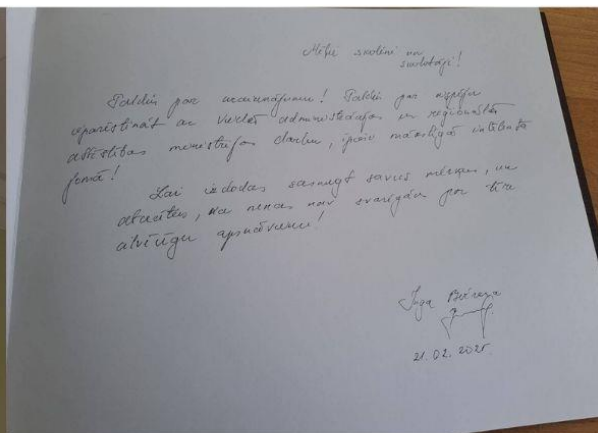 Mīļie skolēni un
skolotāji!
Paldies par uzaicinājumu! Paldies par iespēju
iepazīstināt ar Viedās administrācijas un reģionālās
attīstības ministrijas darbu, īpaši mākslīgā intelekta
jomā!
Lai izdodas sasniegt savus mērķus, un
atcerēties, ka nekas nav svarīgāks par
apmācīšanu!
Inga Bērziņa
21.02.2025.